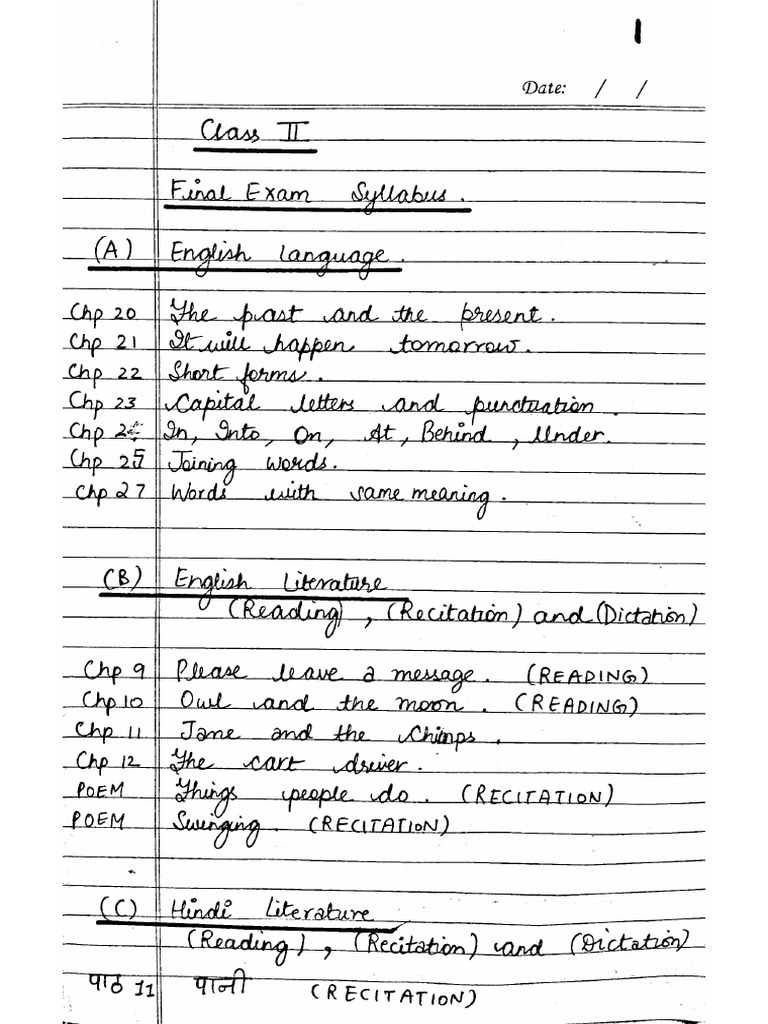 1
Date: / /
Class II
Final Exam Syllabus.
(A) English language.
Chp 20 The past and the present.
Chp 21 It will happen tomorrow.
Chp 22 Short forms.
Chp 23 Capital letters and punctuation.
Chp 24 In, Into, On, At, Behind, Under.
Chp 25 Joining words.
Chp 27 Words with same meaning.
(B) English Literature
(Reading), (Recitation) and (Dictation)
Chp 9 Please leave a message. (READING)
Chp 10 Owl and the moon. (READING)
Chp 11 Jane and the Chimps.
Chp 12 The cart driver.
POEM Things people do. (RECITATION)
POEM Swinging. (RECITATION)
(C) Hindi Literature
(Reading), (Recitation) and (Dictation)
पाठ 11 पानी (RECITATION)